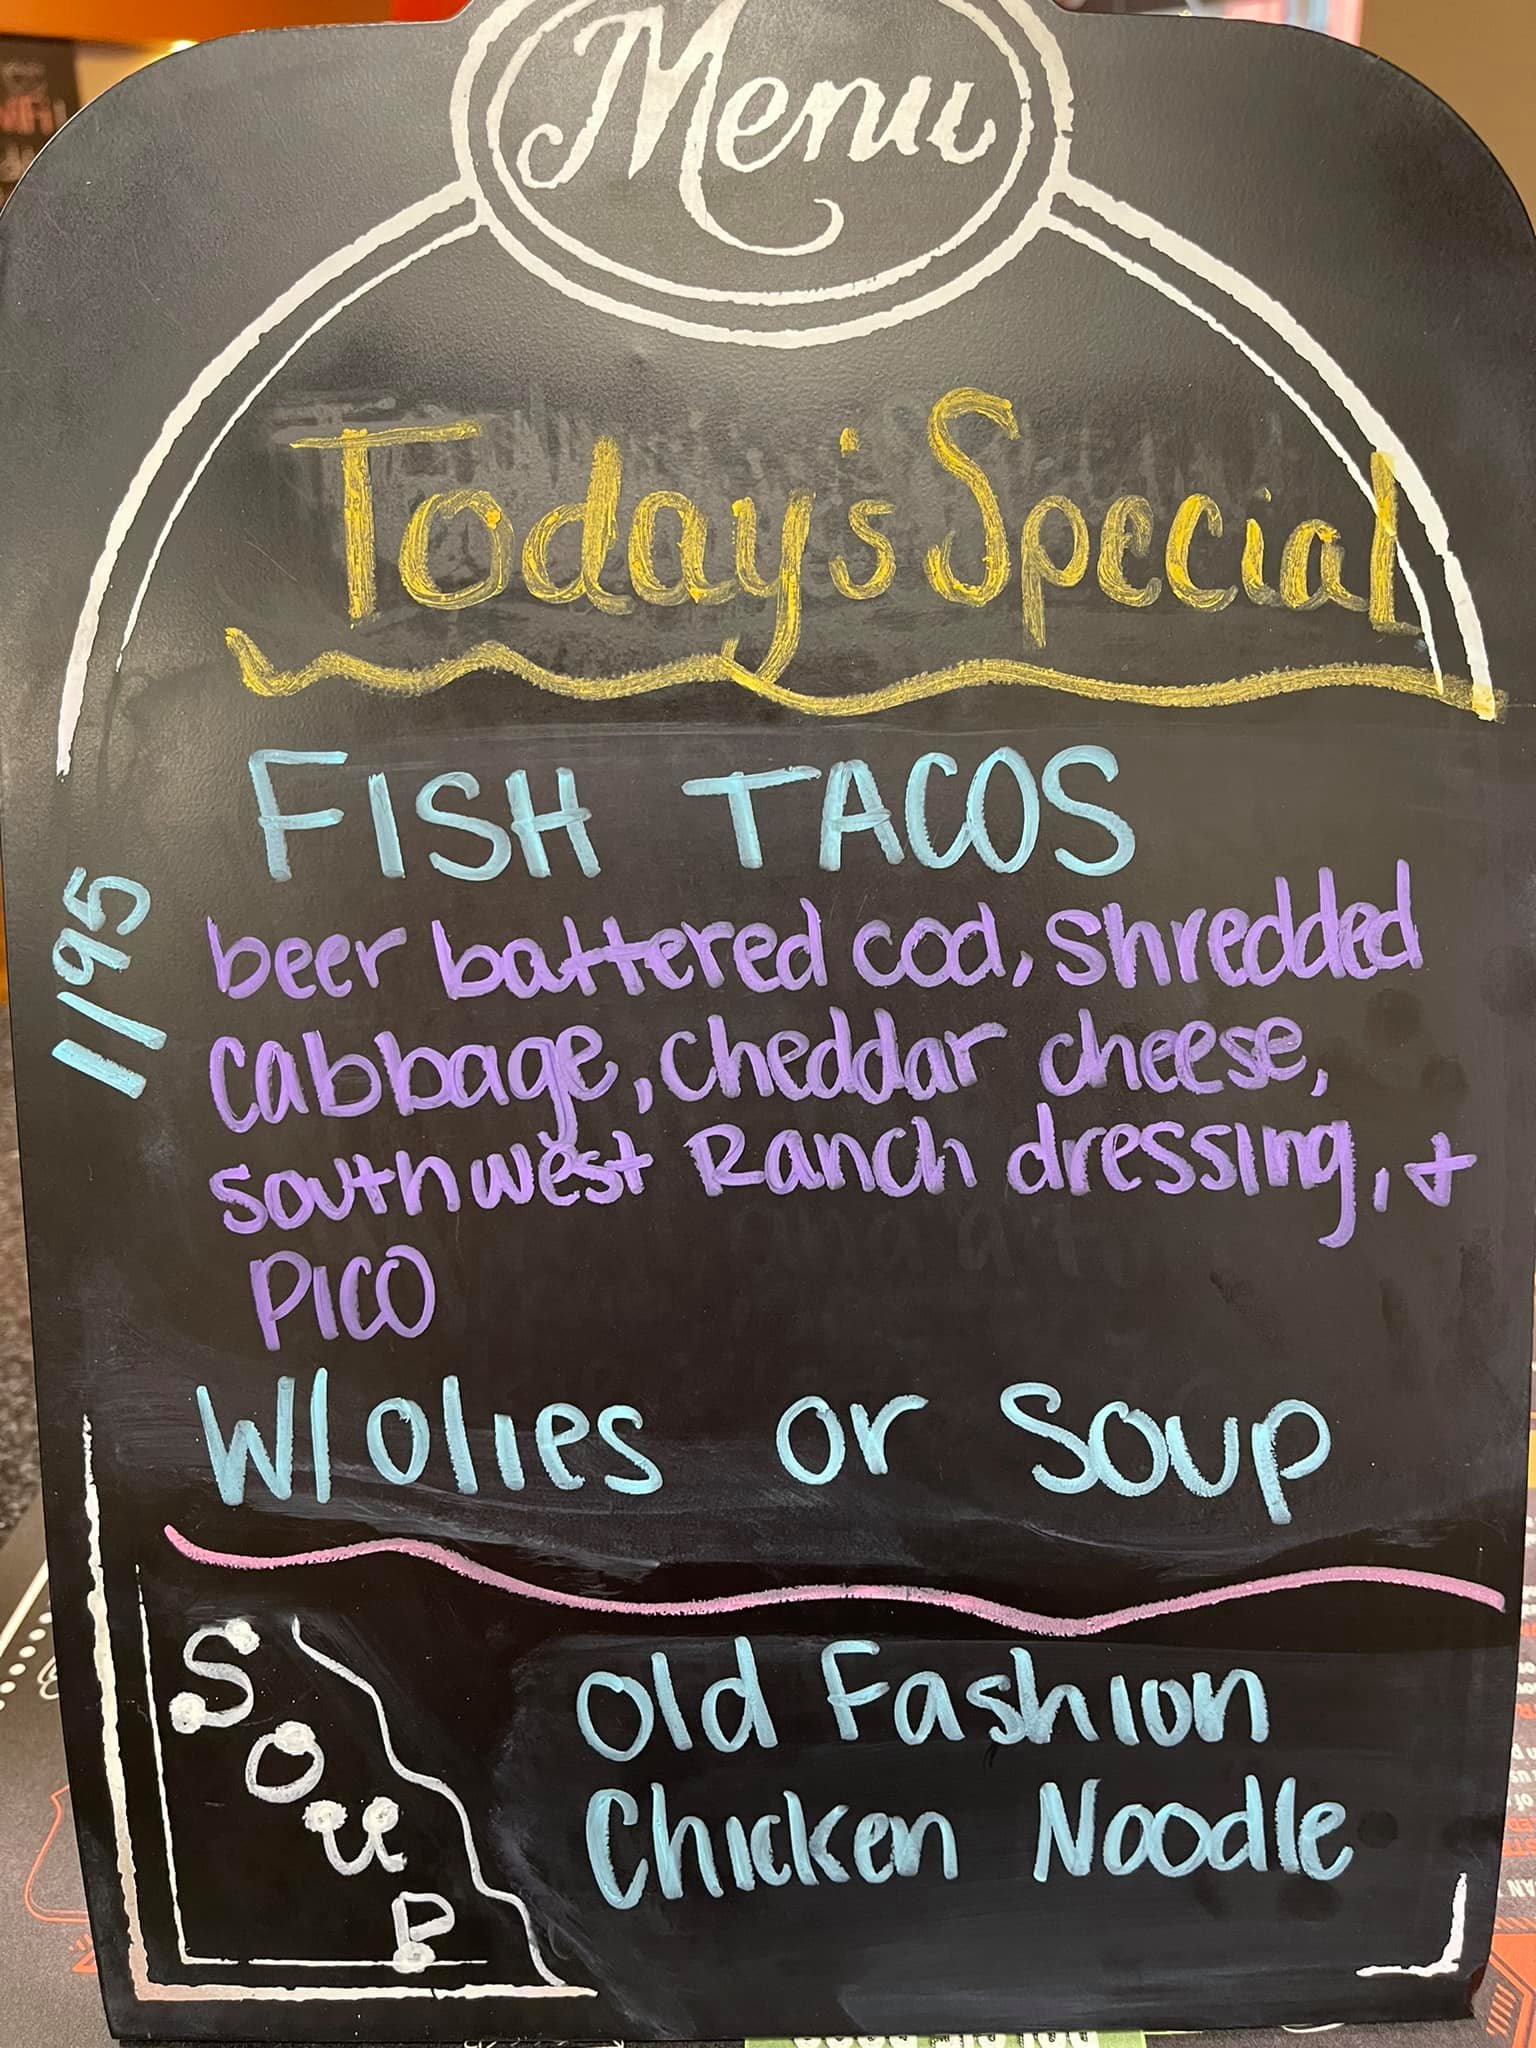 Menu
Today's Special
FISH TACOS
1195
beer battered cod, shredded
cabbage, cheddar cheese,
southwest Ranch dressing, +
PICO
W/ olies or Soup
SOUP
Old Fashion
Chicken Noodle